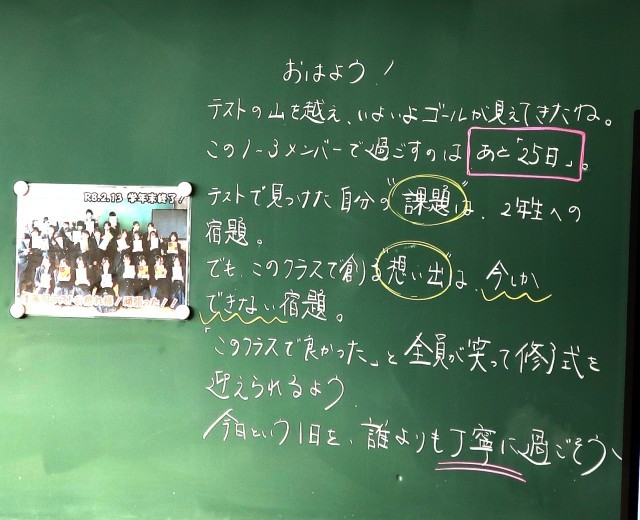 おはよう!
テストの山を越え、いよいよゴールが見えてきたね。
この1-3メンバーで過ごすのは あと「25日」。
テストで見つけた自分の"課題"は、2年生への
宿題。
でも、このクラスで創る"想い出"は、今しか
できない宿題。
「このクラスで良かった」と全員が笑って修了式を
迎えられるよう
今日という1日を、誰よりも丁寧に過ごそう
R8.2.13 学年末終了!